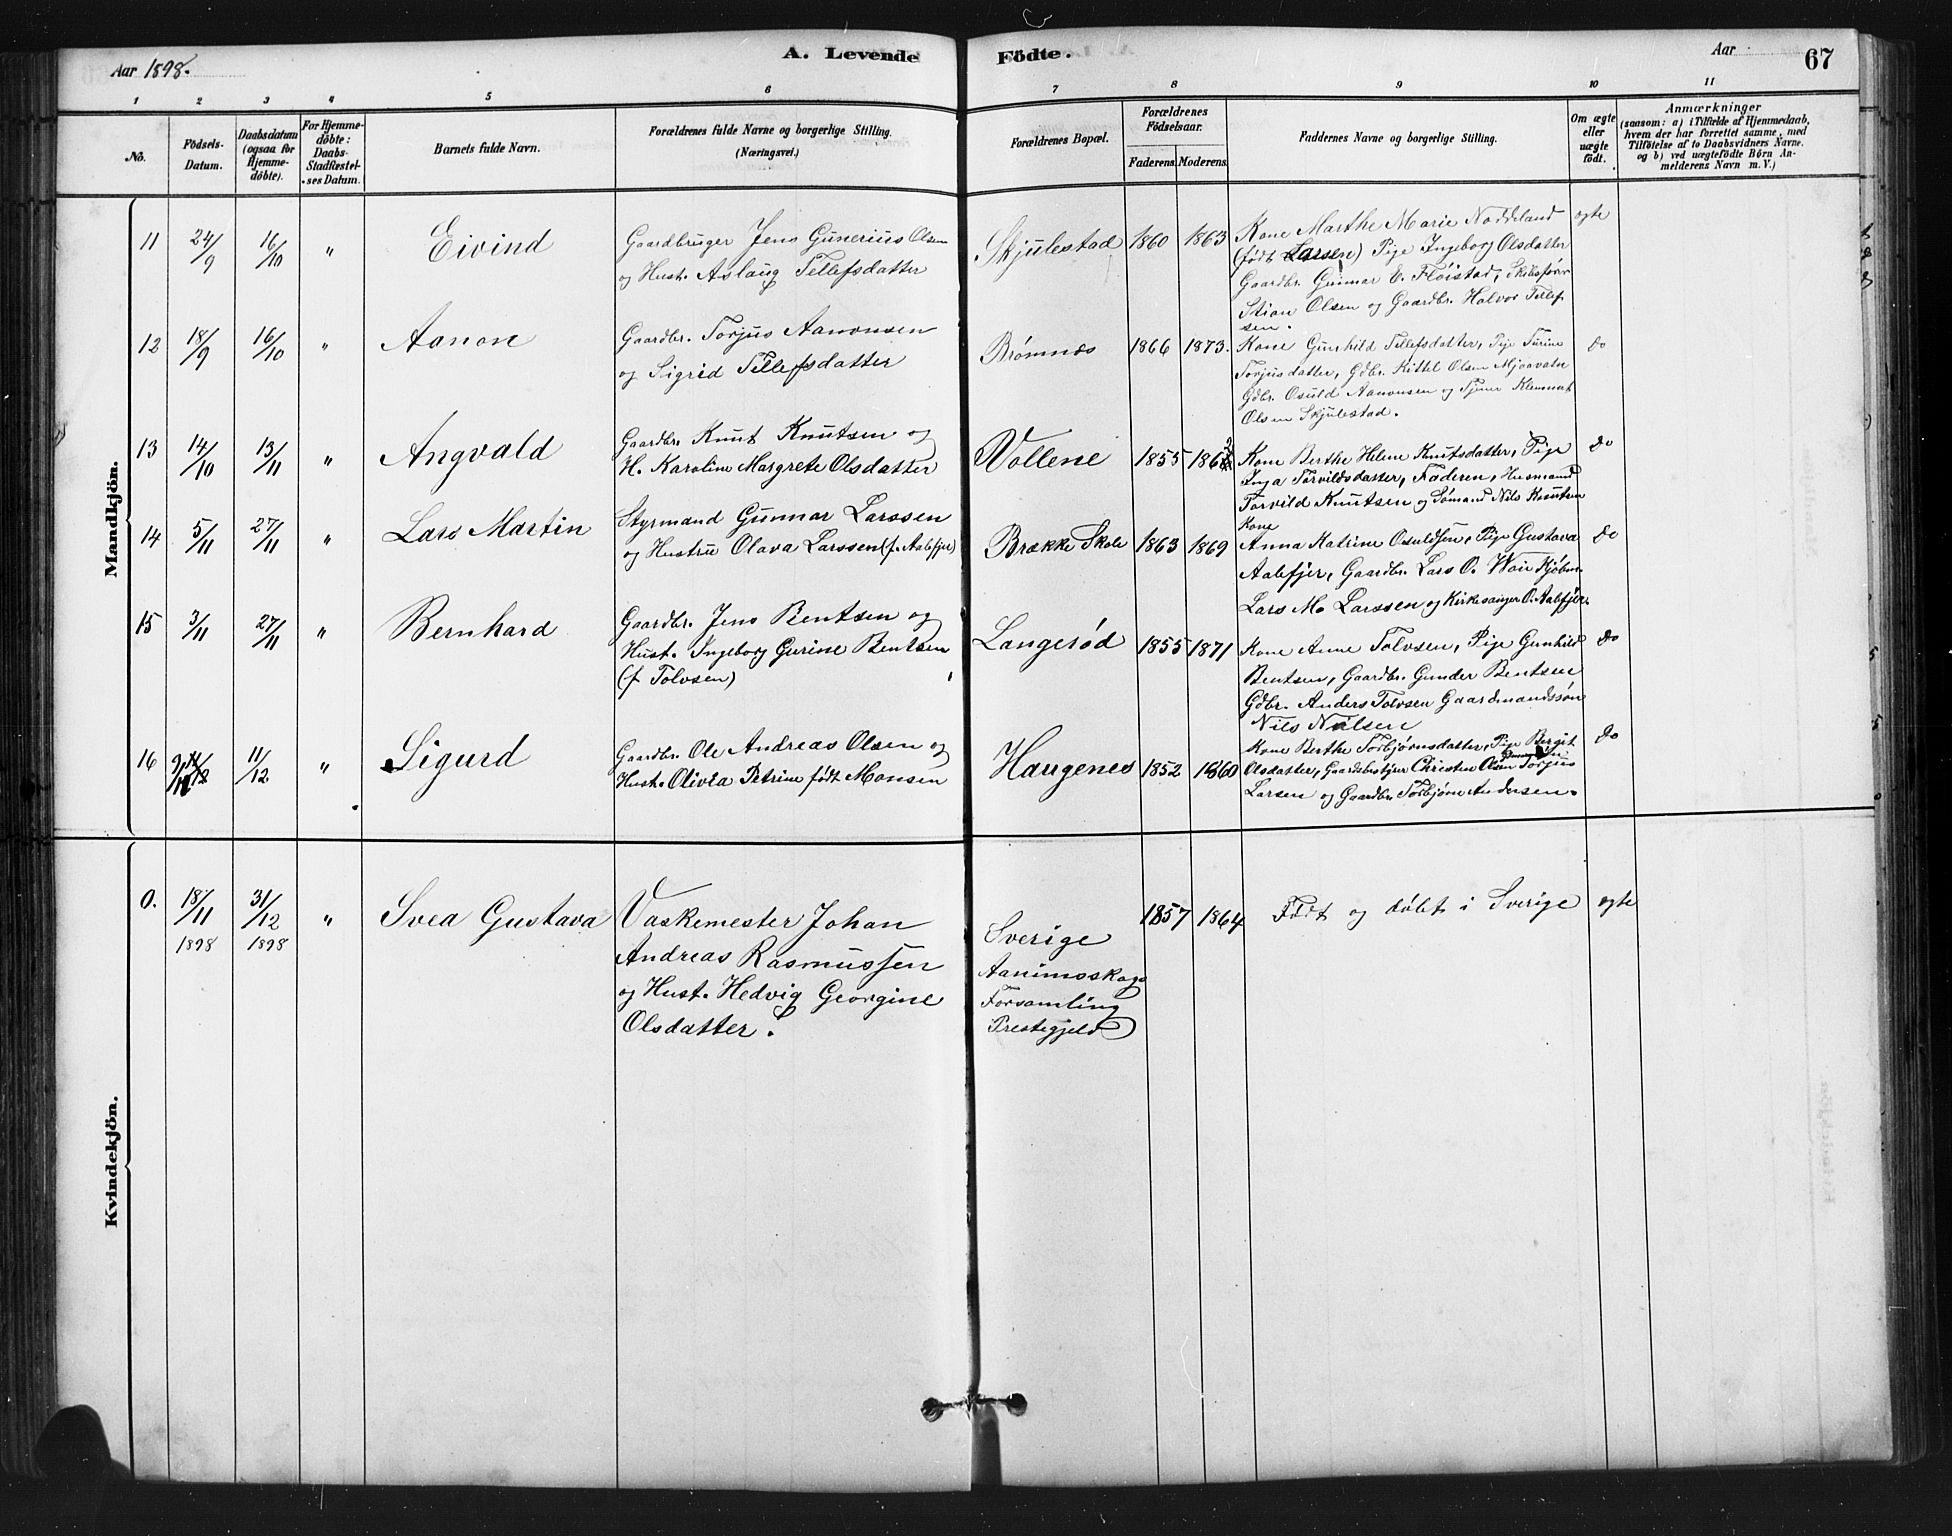 Aar 1898.
A. Levende Födte.
Aar
67
1 2 3 4 5 6 7 8 9 10 11
No.
Födsels-Datum.
Daabsdatum (ogsaa for Hjemme-döbte).
For Hjemme-döbte: Daabs-Stadfæstel-ses Datum.
Barnets fulde Navn.
Forældrenes fulde Navne og borgerlige Stilling.
(Næringsvei.)
Forældrenes Bopæl.
Forældrenes Födselsaar.
Faderens. Moderens.
Faddernes Navne og borgerlige Stilling.
Om ægte eller uægte födt.
Anmærkninger
(saasom: a) i Tilfælde af Hjemmedaab,
hvem der har forrettet samme, med
Tilföielse af to Daabsvidners Navne.
og b) ved uægtefödte Børn An-
melderens Navn m. V.)
Mandkjön.
11 24/9 16/10 " Eivind
Gaardbruger Jens Gunerius Olsen
og Hust. Aslaug Tellefsdatter
Skjulestad 1860 1863
Kone Marthe Marie Noddeland
(født Larsen) Pige Ingeborg Olsdatter
Gaardbr. Gunnar E. Fløistad, Skibsfører
Stian Olsen og Gaardbr. Halvor Tellef
sen.
ægte
12 18/9 16/10 " Aanon
Gaardbr. Torjus Aanonsen
og Sigrid Tellefsdatter
Brømnes 1866 1873.
Kone Gunhild Tellefsdatter, Pige Turine
Torjusdatter, Gdbr. Kittel Olsen Mjaavatn
Gdbr. Osuld Aanonsen og Tjener Klemmet
Olsen Skjulestad.
do
13 14/10 13/11 " Angvald
Gaardbr. Knut Knutsen og
H. Karoline Margrete Olsdatter
Vollene 1855 1862
Kone Berthe Helene Knutsdatter, Pige
Inga Torvildsdatter, Faderen, Husmand
Torvild Knutsen og Sømand Nils Knutsen
do
14 5/11 27/11 " Lars Martin
Styrmand Gunnar Larssen
og Hustru Olava Larssen (f. Aalefjer)
Brække Skole 1863 1869
Kone
Anna Katrine Osuldsen, Pige Gustava
Aalefjer, Gaardbr. Lars O. Kjøbm.
Lars M. Larssen og Kirkesanger O. Aalefjer.
do
15 3/11 27/11 " Bernhard
Gaardbr. Jens Bentsen og
Hust. Ingeborg Gurine Bentsen
(f Tolvsen)
Langerød 1855 1871
Kone Anne Tolvsen, Pige Gunhild
Bentsen, Gaardbr. Gunder Bentsen
Gdbr. Anders Tolvsen Gaardmandssøn
Nils Nilsen
do
16 9/12 11/12 " Sigurd
Gaardbr. Ole Andreas Olsen og
Hust. Olivia Petrine født Monsen
Haugenes 1852 1860
Kone Berthe Torbjørnsdatter, Pige Bergit
Olsdatter, Gaardsbestyrer Christen Olsen Torjus
Larsen og Gaardbr. Torbjørn Andersen.
do
Kvindekjön.
0. 18/11 1898 31/12 1898 " Svea Gustava
Vaskemester Johan
Andreas Rasmussen
og Hust. Hedvig Georgine
Olsdatter.
Sverige
Aanimskogs
Forsamling
Prestegjeld
1857 1864
Født og døbt i Sverige
ægte